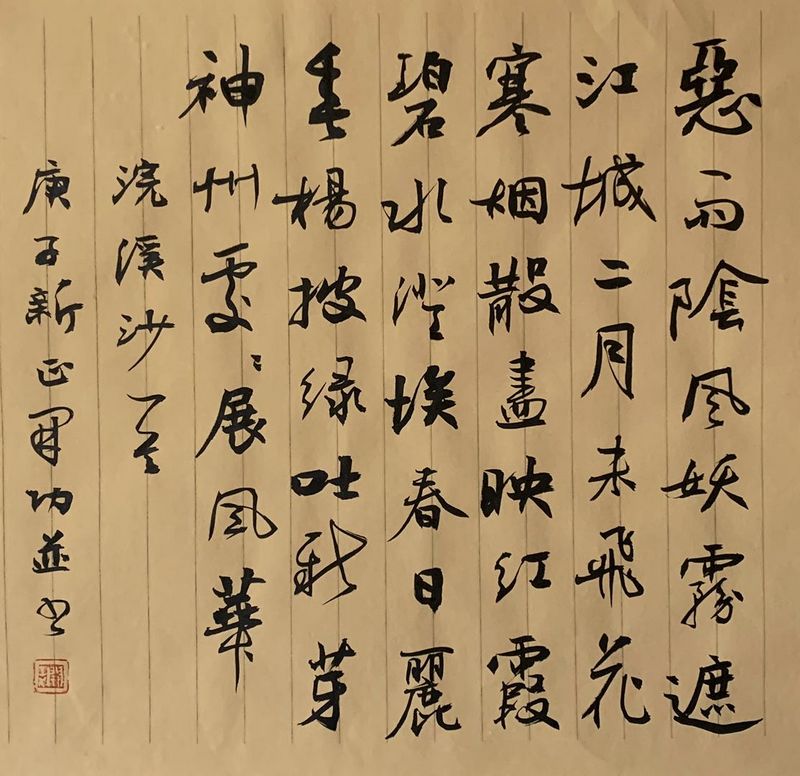 惡雨陰風妖霧遮
江城二月未飛花
寒烟散盡映紅霞
碧水澄埃春日麗
垂楊披绿吐新芽
神州處〻展風華
浣溪沙一首
庚子新正軍功並书